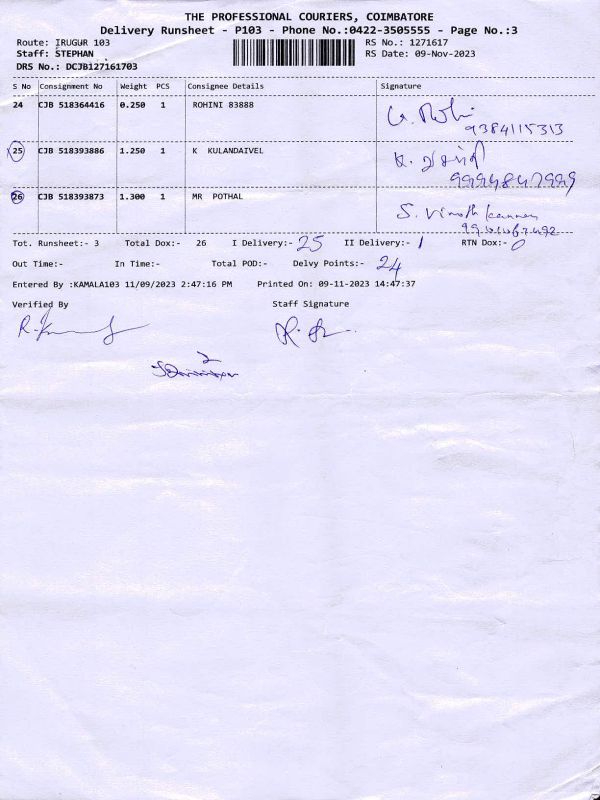 THE PROFESSIONAL COURIERS, COIMBATORE
Delivery Runsheet - P103 - Phone No.:0422-3505555 - Page No.:3
Route: IRUGUR 103 RS No.: 1271617
Staff: STEPHAN RS Date: 09-Nov-2023
DRS No.: DCJB127161703
S No Consignment No Weight PCS Consignee Details Signature
24 CJB 518364416 0.250 1 ROHINI 83888
9384115313
25 CJB 518393886 1.250 1 K KULANDAIVEL
26 CJB 518393873 1.300 1 MR POTHAL
S. Vinoth kannan
Tot. Runsheet:- 3 Total Dox:- 26 I Delivery:- 25 II Delivery:- 1 RTN Dox:- 0
Out Time:- In Time:- Total POD:- Delvy Points:- 24
Entered By :KAMALA103 11/09/2023 2:47:16 PM Printed On: 09-11-2023 14:47:37
Verified By Staff Signature